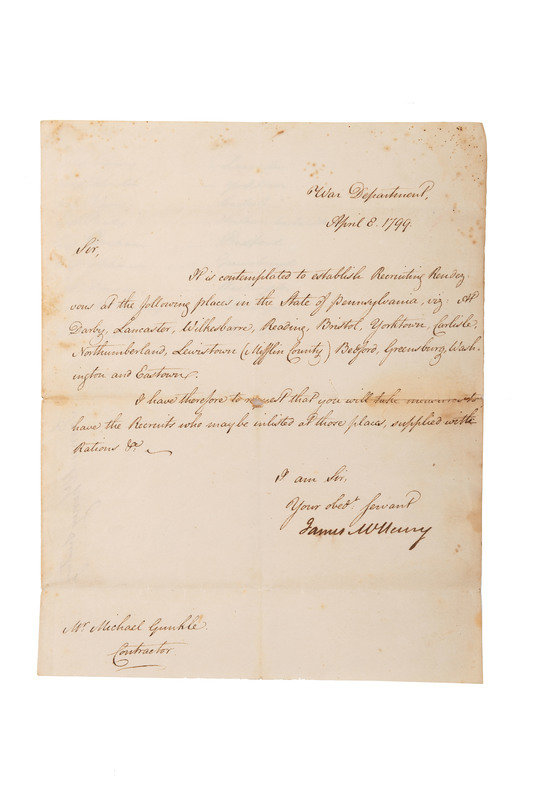 War Department,
April 8. 1799.
Sir,
It is contemplated to establish Recruiting Rendez
vous at the following places in the State of Pennsylvania, viz. At
Darby, Lancaster, Wilkesbarre, Reading, Bristol, Yorktown, Carlisle,
Northumberland, Lewistown (Mifflin County) Bedford, Greensburg, Wash-
ington and Eastown.
I have therefore to request that you will take measures to
have the Recruits who may be inlisted at those places, supplied with
Rations &c.
I am Sir,
Your obedt. servant
James McHenry
Mr. Michael Gunkle
Contractor